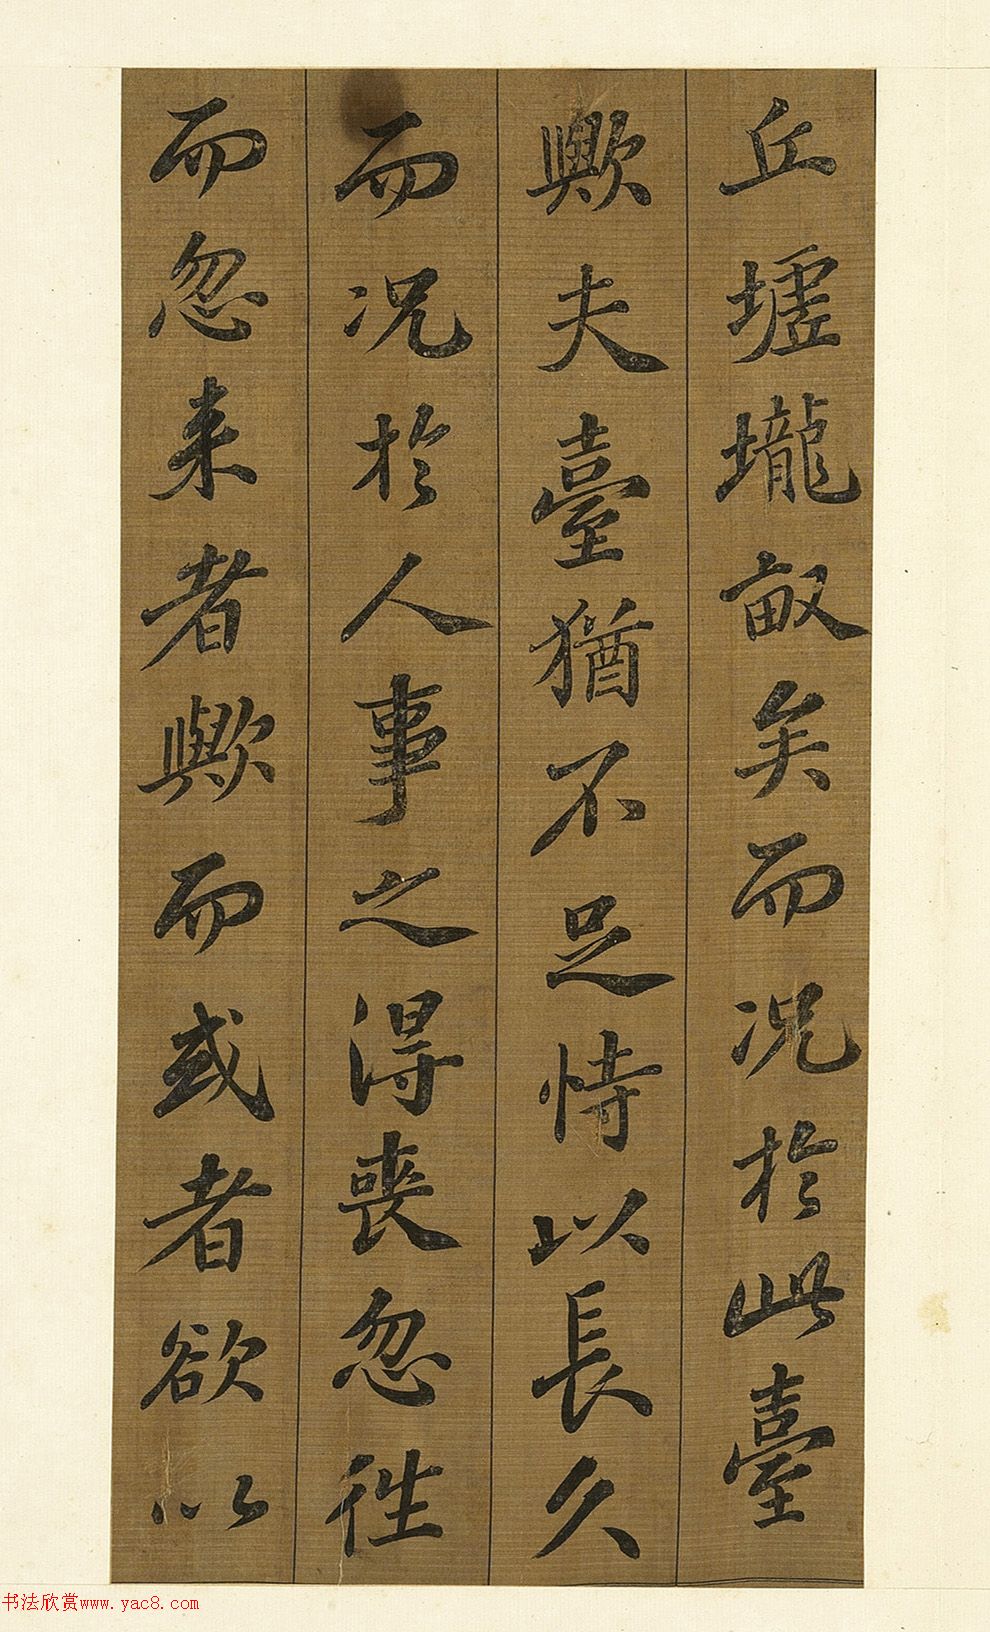 丘墟壠畝矣而况於此臺
歟夫臺猶不足恃以長久
而况於人事之得喪忽往
而忽来者歟而或者欲以
书法欣赏www.yac8.com